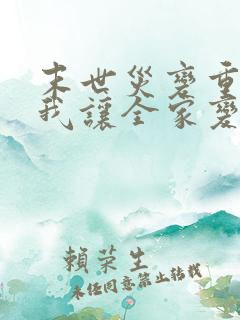 末世災變重
我讓全家變
賴荣生
未經同意禁止轉載